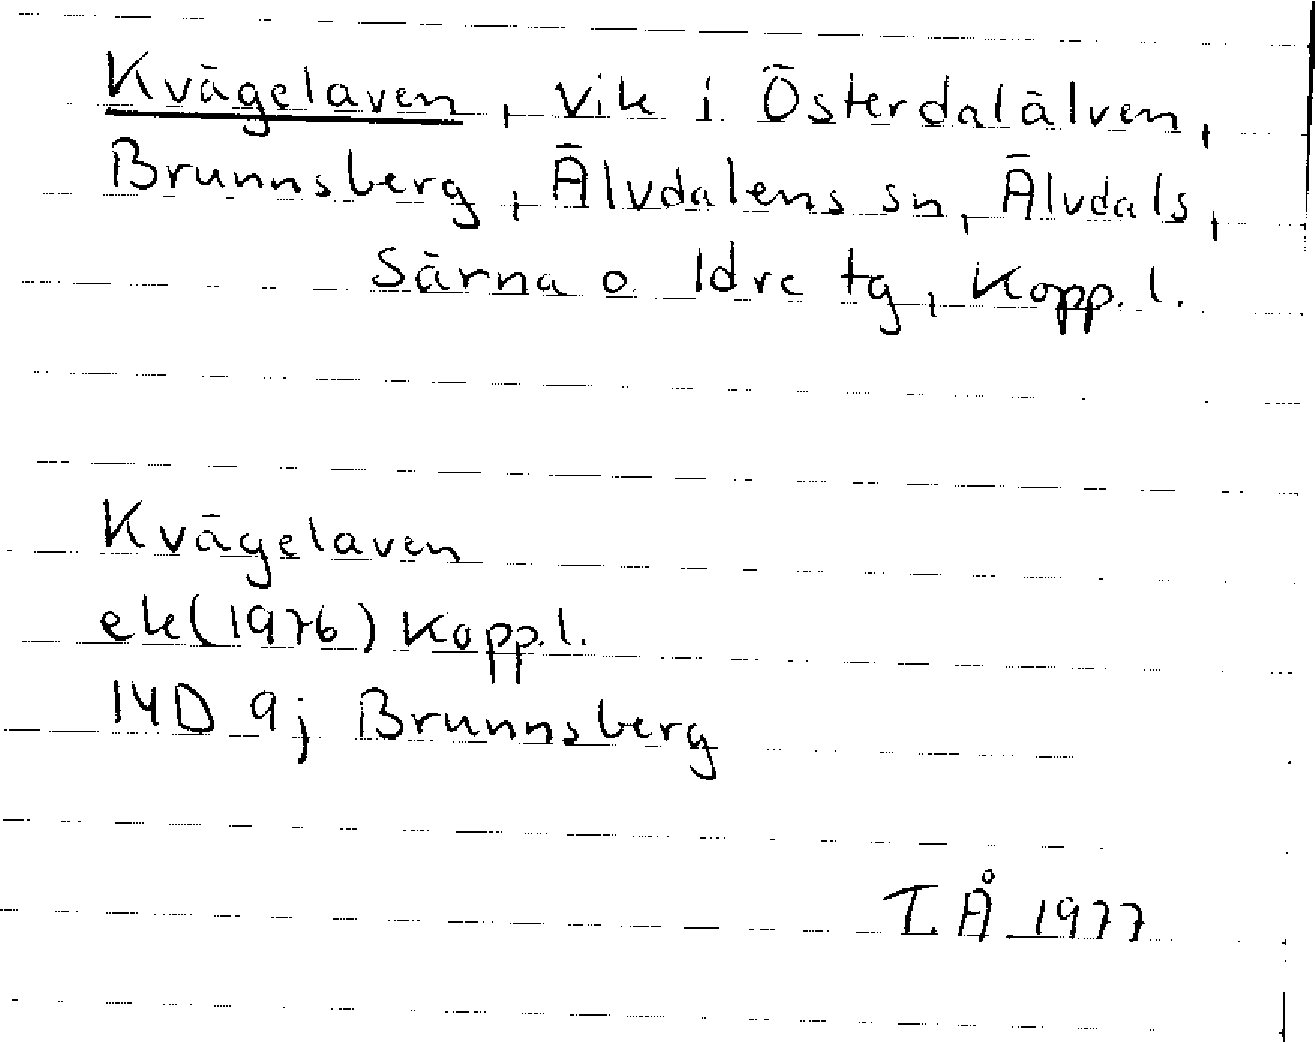 Kvägelaven, vik i Österdalälven,
Brunnsberg, Älvdalens sn, Älvdals,
Särna o Idre tg, Kopp. l.
Kvägelaven
ek(1976) Kopp. l.
14D 9j Brunnsberg
T. Å 1977